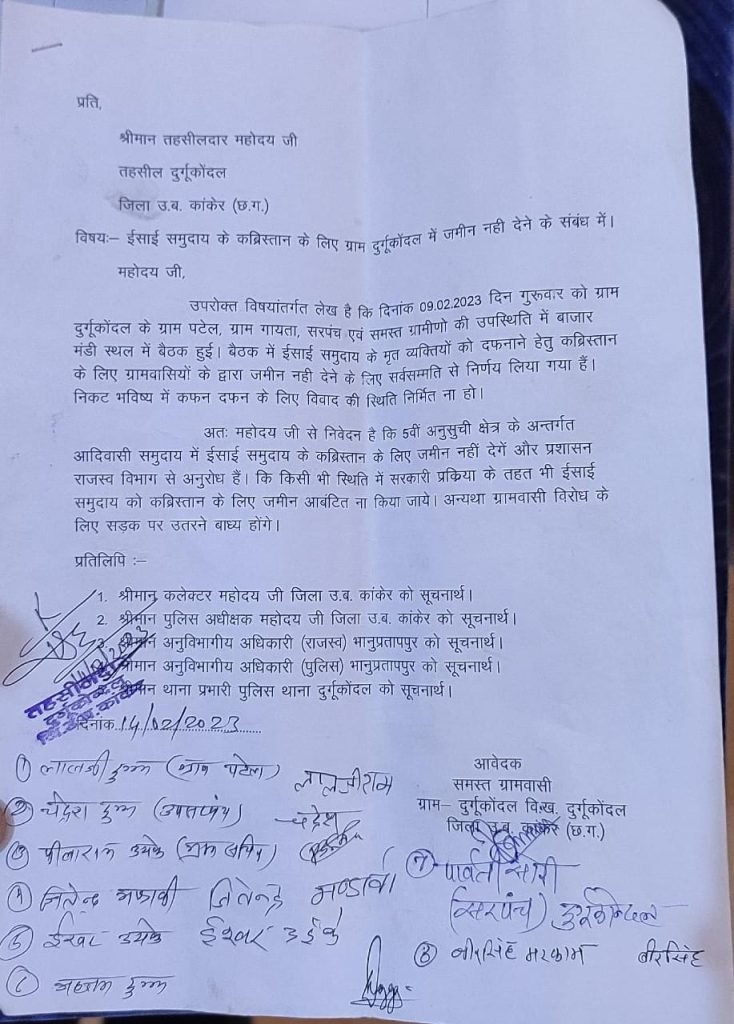 प्रति,
श्रीमान तहसीलदार महोदय जी
तहसील दुर्गूकोंदल
जिला उ.ब. कांकेर (छ.ग.)
विषयः– ईसाई समुदाय के कब्रिस्तान के लिए ग्राम दुर्गूकोंदल में जमीन नही देने के संबंध में।
महोदय जी,
उपरोक्त विषयांतर्गत लेख है कि दिनांक 09.02.2023 दिन गुरूवार को ग्राम
दुर्गूकोंदल के ग्राम पटेल, ग्राम गायता, सरपंच एवं समस्त ग्रामीणो की उपस्थिति में बाजार
मंडी स्थल में बैठक हुई। बैठक में ईसाई समुदाय के मृत व्यक्तियों को दफनाने हेतु कब्रिस्तान
के लिए ग्रामवासियों के द्वारा जमीन नही देने के लिए सर्वसम्मति से निर्णय लिया गया हैं।
निकट भविष्य में कफन दफन के लिए विवाद की स्थिति निर्मित ना हो।
अतः महोदय जी से निवेदन है कि 5वीं अनुसुची क्षेत्र के अन्तर्गत
आदिवासी समुदाय में ईसाई समुदाय के कब्रिस्तान के लिए जमीन नहीं देगें और प्रशासन
राजस्व विभाग से अनुरोध हैं। कि किसी भी स्थिति में सरकारी प्रक्रिया के तहत भी ईसाई
समुदाय को कब्रिस्तान के लिए जमीन आबंटित ना किया जाये। अन्यथा ग्रामवासी विरोध के
लिए सड़क पर उतरने बाध्य होंगे।
प्रतिलिपि :–
1. श्रीमान कलेक्टर महोदय जी जिला उ.ब. कांकेर को सूचनार्थ।
2. श्रीमान पुलिस अधीक्षक महोदय जी जिला उ.ब. कांकेर को सूचनार्थ।
श्रीमान अनुविभागीय अधिकारी (राजस्व) भानुप्रतापपुर को सूचनार्थ।
श्रीमान अनुविभागीय अधिकारी (पुलिस) भानुप्रतापपुर को सूचनार्थ।
श्रीमान थाना प्रभारी पुलिस थाना दुर्गूकोंदल को सूचनार्थ।
तहसीलदार
दुर्गूकोंदल
दिनांक 14/02/2023
आवेदक
समस्त ग्रामवासी
ग्राम– दुर्गूकोंदल वि.ख. दुर्गूकोंदल
जिला उ.ब. कांकेर (छ.ग.)
① लालजी (ग्राम पटेल) लालजीराम
② चंद्रेश (उपसरपंच) चंद्रेश
③
④ जितेन्द्र जितेन्द्र मण्डावी
⑤ ईश्वर ईश्वर उईके
⑥
⑦ पार्वती
(सरपंच) दुर्गूकोंदल
⑧ बीरसिंह मरकाम बीरसिंह